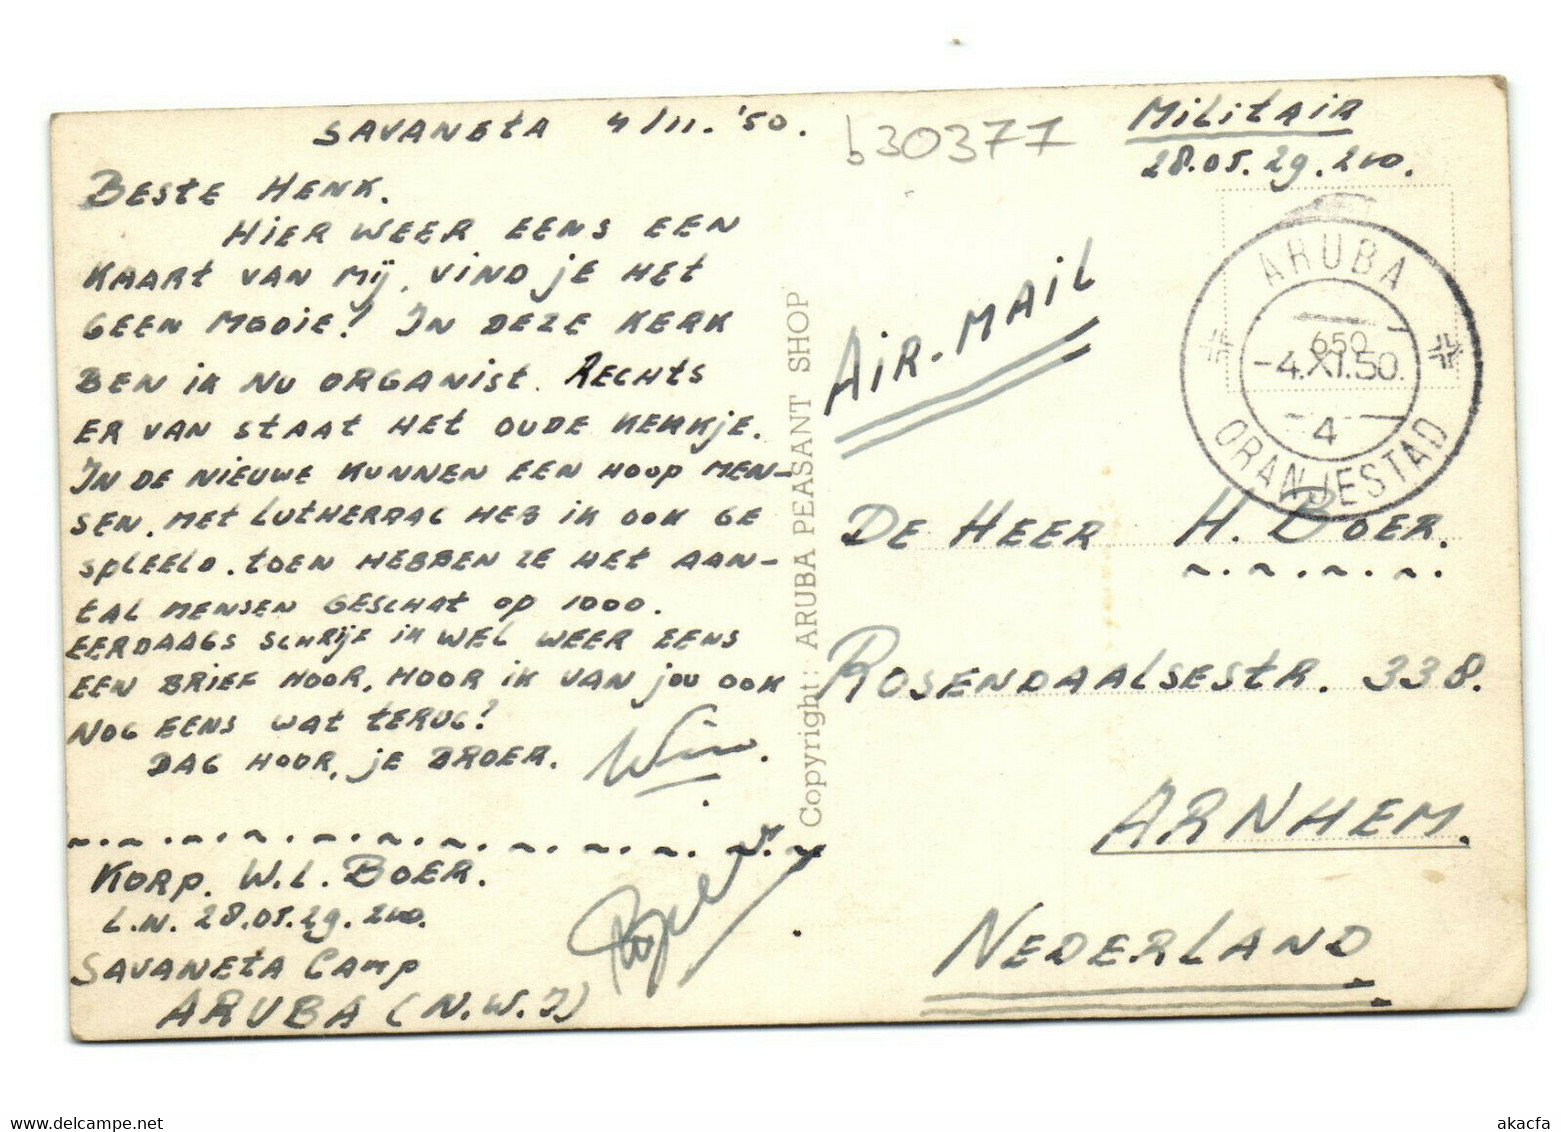 SAVANEtA 4/11.'50.
BESTE HENK.
HiER WEER EENS EEN
KAARt VAN Mij, VIND jE HEt
GEEN MOOiE! IN DEZE KERK
BEN iK NU ORGANiSt. RECHtS
ER VAN StAAt HEt OUDE KERKjE.
IN DE NiEUWE KUNNEN EEN HOOP MEN-
SEN. MEt LUtHERDAG HEB iK OOK GE
SPLEELD. tOEN HEBBEN ZE HEt AAN-
tAL MENSEN GESCHAt OP 1000.
EERDAAGS SCHRijF iK WEL WEER EENS
EEN BRiEF HOOR, HOOR iK VAN jOU OOK
NOG EENS WAt tERUG?
DAG HOOR, jE BROER. Wim.
KORP. W.L. BOER.
L.N. 28.05.29.210.
SAVANEtA CAMP
ARUBA (N.W.I)
Copyright: ARUBA PEASANT SHOP
b30377
MiLitAiR
28.05.29.210.
ARUBA
650
-4.XI.50.
4
ORANJESTAD
AiR-MAiL
DE HEER H. BOER.
ROSENDAALSEStR. 338.
ARNHEM.
NEDERLAND
www.delcampe.net
akacfa